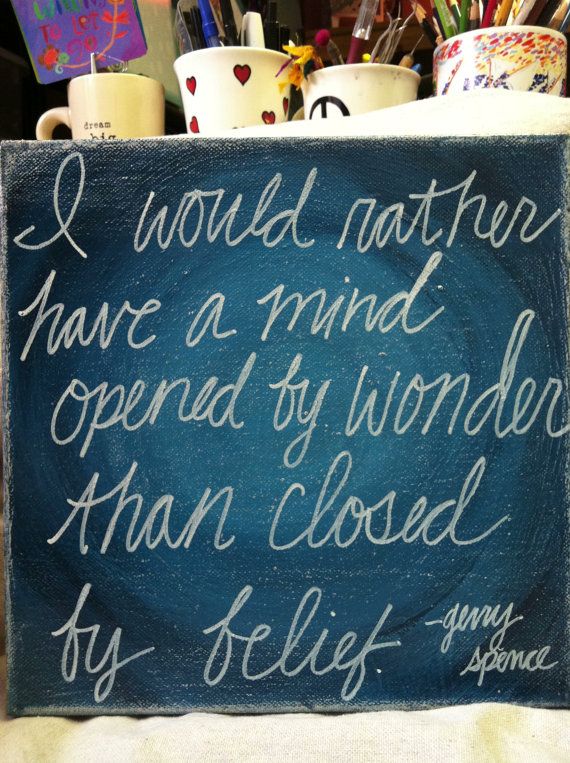 TO LET
GO
dream
big
I would rather
have a mind
opened by wonder
than closed
by belief.
-gerry
spence